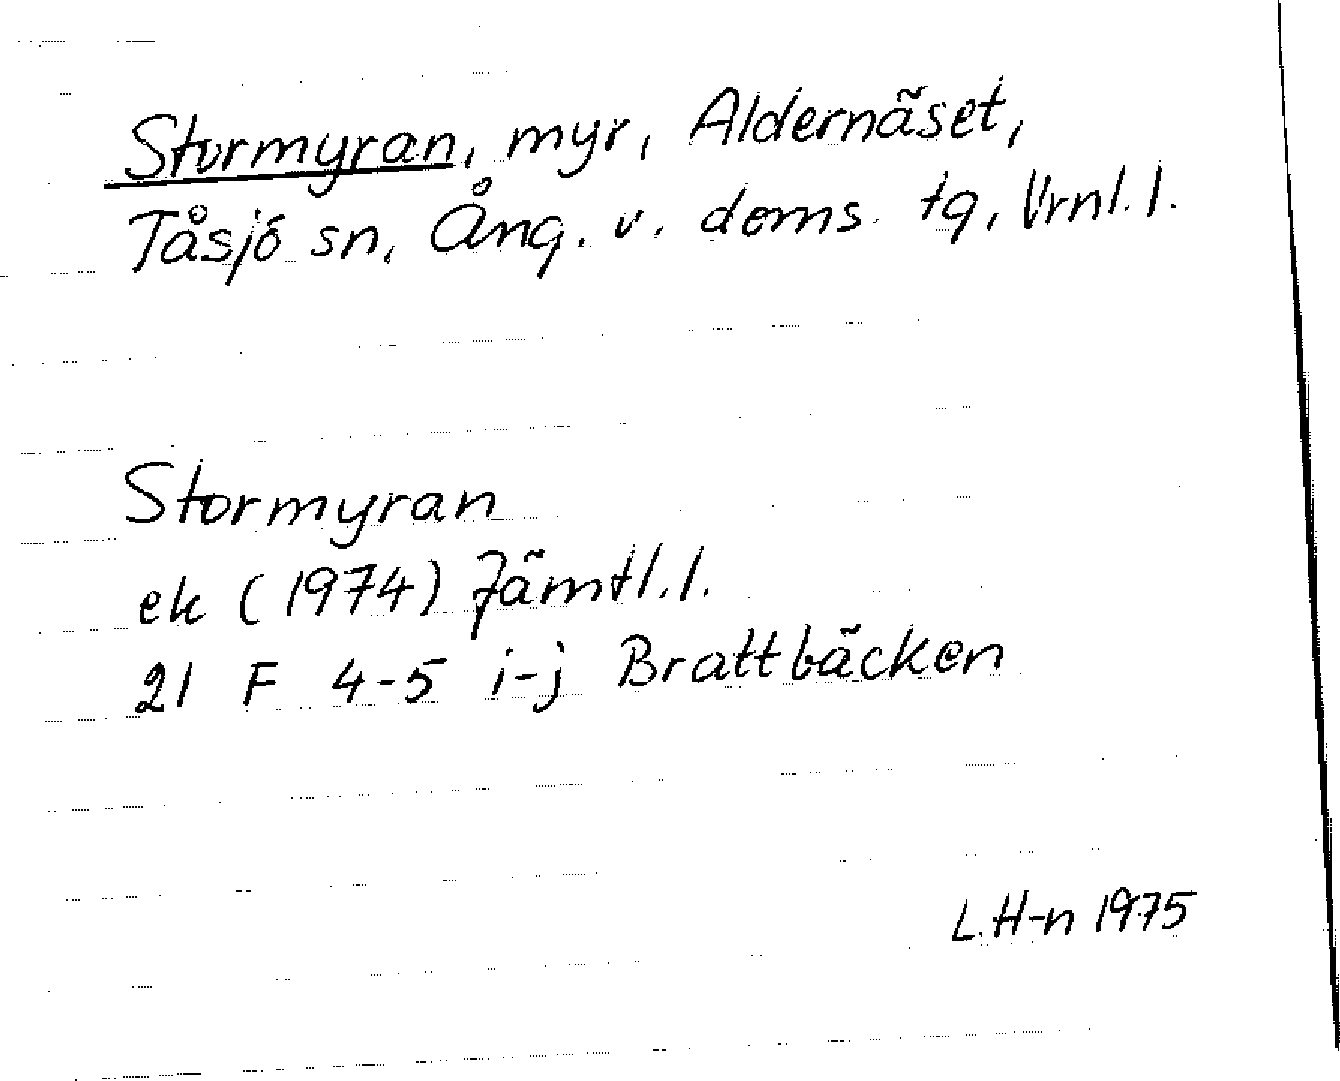 Stormyran, myr, Aldernäset,
Tåsjö sn, Ång. v. doms. tg, Vrnl. l.
Stormyran
ek (1974) Jämtl. l.
21 F 4-5 i-j Brattbäcken
L. H-n 1975